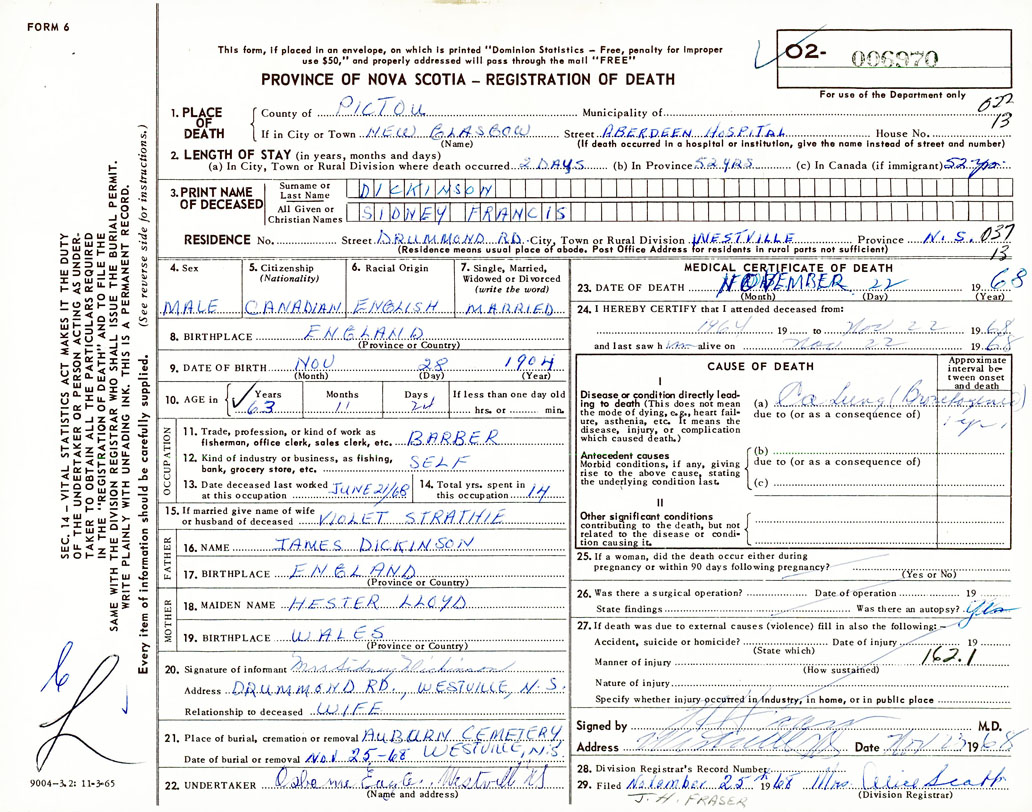 FORM 6
This form, if placed in an envelope, on which is printed "Dominion Statistics – Free, penalty for improper
use $50," and properly addressed will pass through the mail "FREE"
PROVINCE OF NOVA SCOTIA – REGISTRATION OF DEATH
O2- 006970
For use of the Department only
SEC. 14 – VITAL STATISTICS ACT MAKES IT THE DUTY
OF THE UNDERTAKER OR PERSON ACTING AS UNDER-
TAKER TO OBTAIN ALL THE PARTICULARS REQUIRED
IN THE "REGISTRATION OF DEATH" AND TO FILE THE
SAME WITH THE DIVISION REGISTRAR WHO SHALL ISSUE THE BURIAL PERMIT.
WRITE PLAINLY WITH UNFADING INK. THIS IS A PERMANENT RECORD.
Every item of information should be carefully supplied. (See reverse side for instructions.)
9004-3.2: 11-3-65
1. PLACE OF DEATH
County of PICTOU Municipality of
13
If in City or Town NEW GLASGOW Street ABERDEEN HOSPITAL House No.
(Name) (If death occurred in a hospital or institution, give the name instead of street and number)
2. LENGTH OF STAY (in years, months and days)
(a) In City, Town or Rural Division where death occurred 2 DAYS (b) In Province 52 YRS (c) In Canada (if immigrant) 52 yrs.
3. PRINT NAME OF DECEASED
Surname or Last Name DICKINSON
All Given or Christian Names SIDNEY FRANCIS
RESIDENCE No. Street DRUMMOND RD. City, Town or Rural Division WESTVILLE Province N.S. 037
(Residence means usual place of abode. Post Office Address for residents in rural parts not sufficient) 13
4. Sex MALE
5. Citizenship (Nationality) CANADIAN
6. Racial Origin ENGLISH
7. Single, Married, Widowed or Divorced (write the word) MARRIED
8. BIRTHPLACE ENGLAND
(Province or Country)
9. DATE OF BIRTH NOV 28 1904
(Month) (Day) (Year)
10. AGE in Years 63 Months 11 Days 24 If less than one day old hrs. or min.
OCCUPATION
11. Trade, profession, or kind of work as
fisherman, office clerk, sales clerk, etc. BARBER
12. Kind of industry or business, as fishing,
bank, grocery store, etc. SELF
13. Date deceased last worked at this occupation JUNE 21/68 14. Total yrs. spent in this occupation 14
15. If married give name of wife
or husband of deceased VIOLET STRATHIE
FATHER
16. NAME JAMES DICKINSON
17. BIRTHPLACE ENGLAND
(Province or Country)
MOTHER
18. MAIDEN NAME HESTER LLOYD
19. BIRTHPLACE WALES
(Province or Country)
20. Signature of informant Mrs Sidney Dickinson
Address DRUMMOND RD., WESTVILLE, N.S.
Relationship to deceased WIFE
21. Place of burial, cremation or removal AUBURN CEMETERY,
Date of burial or removal NOV 25-68 WESTVILLE, N.S.
22. UNDERTAKER Westville NS
(Name and address)
MEDICAL CERTIFICATE OF DEATH
23. DATE OF DEATH NOVEMBER 22 1968
(Month) (Day) (Year)
24. I HEREBY CERTIFY that I attended deceased from:
1964 19 to Nov 22 1968
and last saw him alive on Nov 22 1968
CAUSE OF DEATH
Approximate interval be-tween onset and death
I
Disease or condition directly lead-
ing to death (This does not mean
the mode of dying, e.g., heart fail-
ure, asthenia, etc. It means the
disease, injury, or complication
which caused death.)
(a) Ca Lung (Bronchogenic)
due to (or as a consequence of) 1 yr.
Antecedent causes
Morbid conditions, if any, giving
rise to the above cause, stating
the underlying condition last.
(b)
due to (or as a consequence of)
(c)
II
Other significant conditions
contributing to the death, but not
related to the disease or condi-
tion causing it.
25. If a woman, did the death occur either during
pregnancy or within 90 days following pregnancy?
(Yes or No)
26. Was there a surgical operation? Date of operation 19
State findings Was there an autopsy? Yes
27. If death was due to external causes (violence) fill in also the following:
Accident, suicide or homicide? Date of injury 19
(State which) 162.1
Manner of injury
(How sustained)
Nature of injury
Specify whether injury occurred in Industry, in home, or in public place
Signed by M.D.
Address Date Nov 1968
28. Division Registrar's Record Number
29. Filed November 25th 1968 Mrs. Alice Scott
J. H. FRASER (Division Registrar)